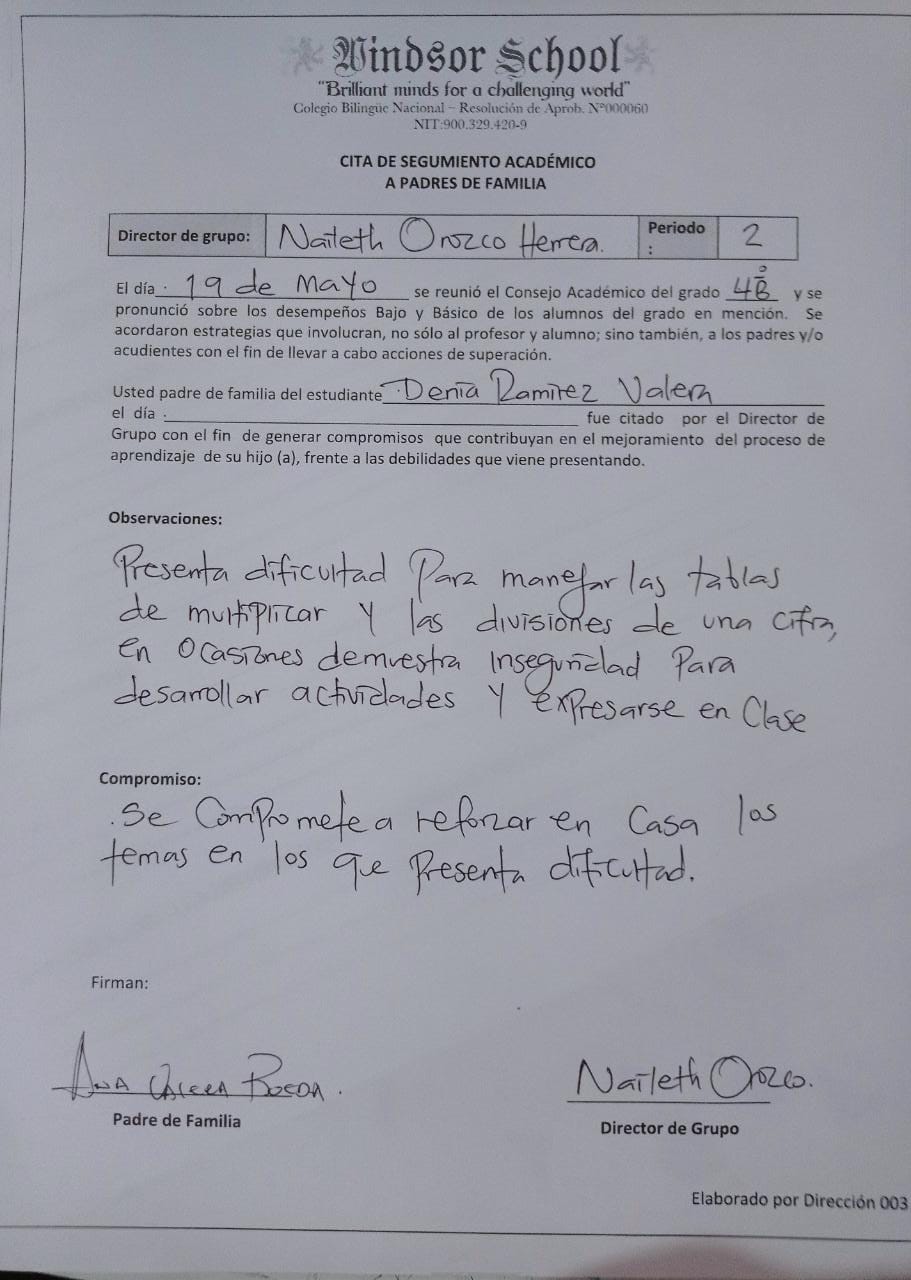 Windsor School
"Brilliant minds for a challenging world"
Colegio Bilingüe Nacional – Resolución de Aprob. N°000060
NIT:900.329.420-9
CITA DE SEGUMIENTO ACADÉMICO
A PADRES DE FAMILIA
Director de grupo: Naileth Orozco Herrera. Periodo : 2
El día . 19 de Mayo se reunió el Consejo Académico del grado 4°B y se
pronunció sobre los desempeños Bajo y Básico de los alumnos del grado en mención. Se
acordaron estrategias que involucran, no sólo al profesor y alumno; sino también, a los padres y/o
acudientes con el fin de llevar a cabo acciones de superación.
Usted padre de familia del estudiante Denia Ramirez Valera
el día . fue citado por el Director de
Grupo con el fin de generar compromisos que contribuyan en el mejoramiento del proceso de
aprendizaje de su hijo (a), frente a las debilidades que viene presentando.
Observaciones:
Presenta dificultad Para manejar las tablas
de multiplicar y las divisiones de una cifra,
en Ocasiones demuestra Inseguridad Para
desarrollar actividades y expresarse en Clase
Compromiso:
. Se Compromete a reforzar en Casa los
temas en los que Presenta dificultad.
Firman:
Ana Valera
Naileth Orozco.
Padre de Familia
Director de Grupo
Elaborado por Dirección 003